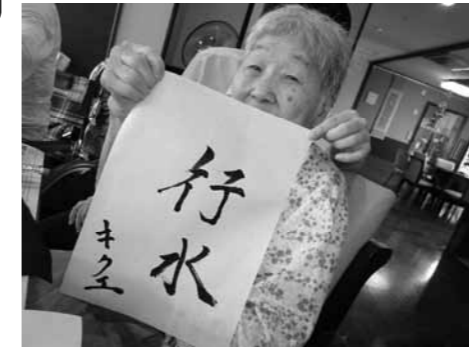 行水
キクエ